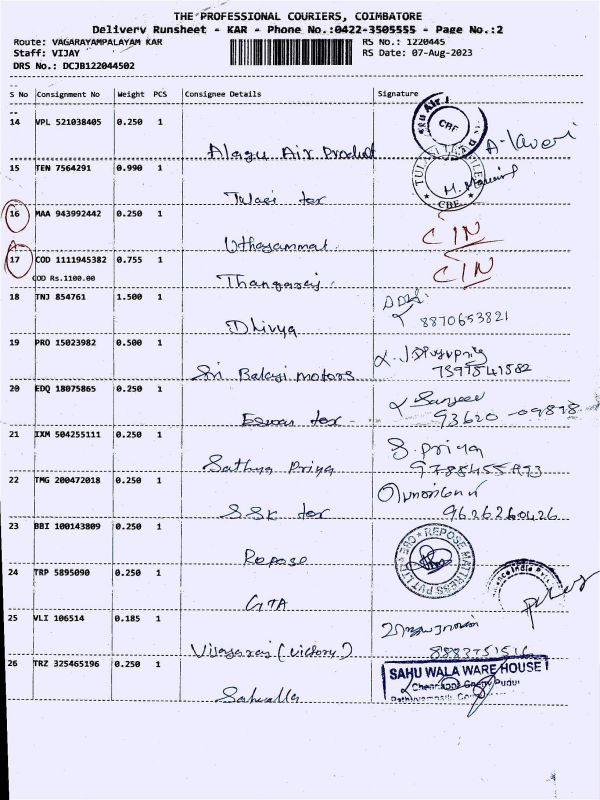 THE PROFESSIONAL COURIERS, COIMBATORE
Delivery Runsheet - KAR - Phone No.:0422-3505555 - Page No.:2
Route: VAGARAYAMPALAYAM KAR RS No.: 1220445
Staff: VIJAY RS Date: 07-Aug-2023
DRS No.: DCJB122044502
S No Consignment No Weight PCS Consignee Details Signature
14 VPL 521038405 0.250 1
Alagu Air Product
CBE
15 TEN 7564291 0.990 1
Tulasi tex
CBE
16 MAA 943992442 0.250 1
Uthayammal
CIN
17 COD 1111945382 0.755 1
COD Rs.1100.00
Thangaraj
CIN
18 TNJ 854761 1.500 1
Dhivya 8870653821
19 PRO 15023982 0.500 1
Sri Balaji motors
20 EDQ 18075865 0.250 1
Eswar tex Sanjeev
93620-09898
21 IXM 504255111 0.250 1
Sathya Priya S. Priya
22 TMG 200472018 0.250 1
SSK tex 9626260426
23 BBI 100143809 0.250 1
Repose
REPOSE MATTRESS PVT LTD CBE
24 TRP 5895090 0.250 1
GTA
25 VLI 106514 0.185 1
Vijayaraj (victory) 8883751516
26 TRZ 325465196 0.250 1
SAHU WALA WARE HOUSE